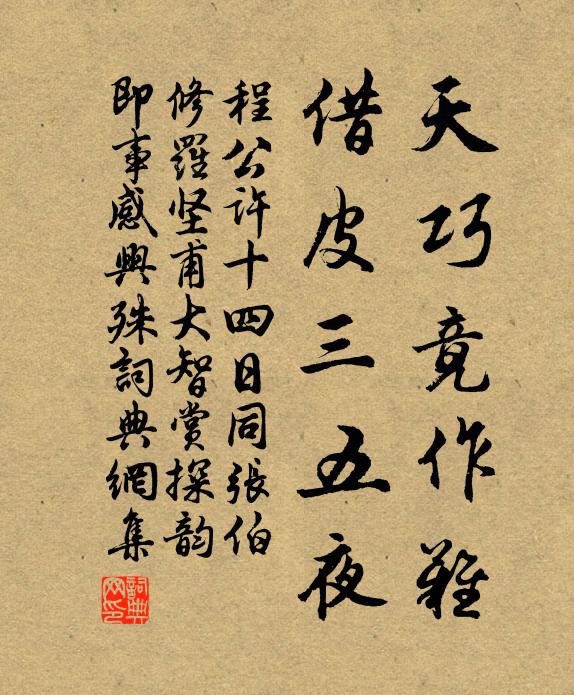 天巧竟作難
借皮三五夜
程公許十四日同張伯
修羅坚甫大智賞探韵
即事感興殊詞典網集
詞典网印